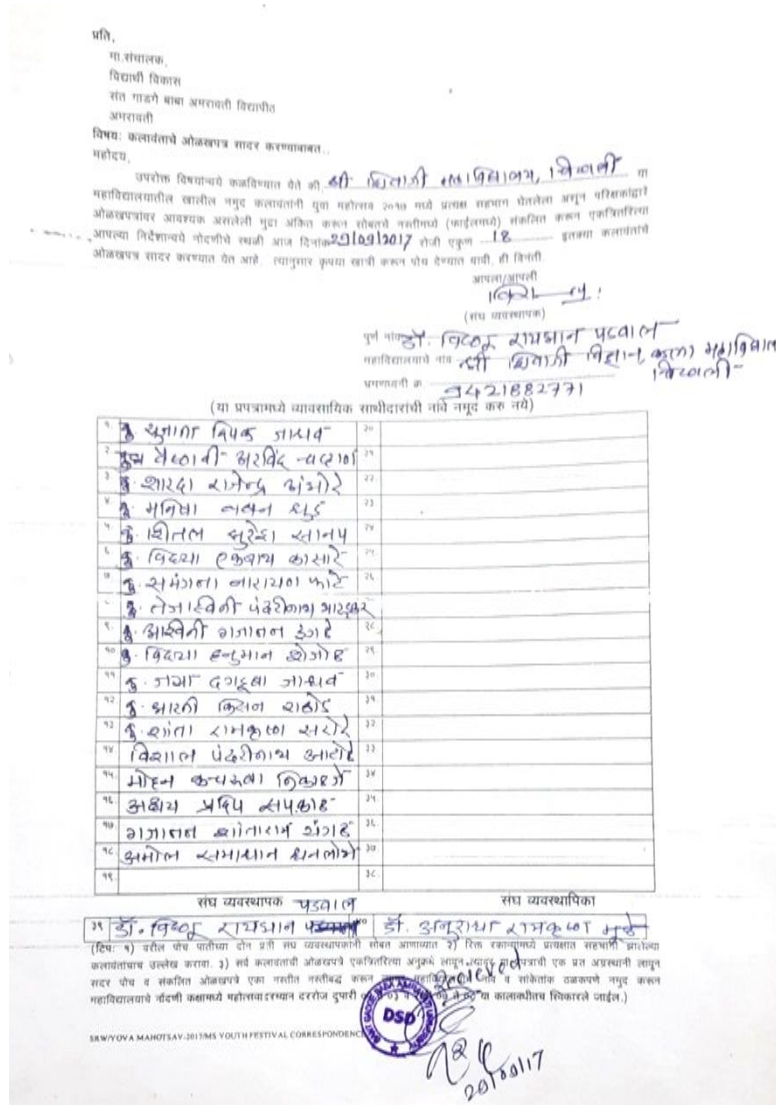 प्रति,
मा.संचालक,
विद्यार्थी विकास
संत गाडगे बाबा अमरावती विद्यापीठ
अमरावती
विषयः कलावंताचे ओळखपत्र सादर करण्याबाबत..
महोदय,
उपरोक्त विषयान्वये कळविण्यात येते की श्री शिवाजी महाविद्यालय, चिखली या
महाविद्यालयातील खालील नमुद कलावंतांनी युवा महोत्सव २०१७ मध्ये प्रत्यक्ष सहभाग घेतलेला असून परिक्षकांद्वारे
ओळखपत्रांवर आवश्यक असलेली मुद्रा अंकित करून सोबतचे नस्तीमध्ये (फाईलमध्ये) संकलित करून एकत्रितरित्या
आपल्या निर्देशान्वये नोंदणीचे स्थळी आज दिनांक 29/09/2017 रोजी एकुण 18 इतक्या कलावंतांचे
ओळखपत्र सादर करण्यात येत आहे. त्यानुसार कृपया खात्री करून पोच देण्यात यावी, ही विनंती.
आपला/आपली
(संघ व्यवस्थापक)
पुर्ण नांव डॉ. विष्णू रायभान पडवाल
महाविद्यालयाचे नांव श्री शिवाजी विज्ञान, कला महाविद्यालय
चिखली
भ्रमणध्वनी क्र 9421882771
(या प्रपत्रामध्ये व्यावसायिक साथीदारांची नांवे नमुद करु नये)
१. कु सुजाता दिपक जाधव २०
२ वैष्णवी अरविंद चव्हाण २१
३ कु. शारदा राजेन्द्र अंभोरे २२
४ कु. मनिषा बबन २३
५. कु. शितल सुरेश सानप २४
६. कु. विद्या एकनाथ कासारे २५.
७ कु. समंगना नारायण काटे २६
कु. तेजस्विनी पंढरीनाथ
९. कु. आश्विनी गजानन इंगळे २८
१० कु. विद्या हनुमान शेजोळ २९
११ कु. जया दगडूबा जाधव ३०
१२ कु. भारती किसन राठोड ३१
१३ कु. शांता रामकृष्ण सरोदे ३२
१४ विशाल पंढरीनाथ आटोळे ३३
१५. मोहन कचरूबा निकाळजे ३४
१६ अक्षय प्रदिप सपकाळ ३५
१७ गजानन शांताराम इंगळे ३६
१८. अमोल समाधान ३७
१९. ३८
संघ व्यवस्थापक पडवाल संघ व्यवस्थापिका
३९ डॉ. विष्णू रायभान ४० डॉ. अनुराधा रामकृष्ण मुळे
(टिपः १) वरील पोच पावतीच्या दोन प्रती संघ व्यवस्थापकांनी सोबत आणाव्यात २) रिक्त रकान्यांमध्ये प्रत्यक्षात सहभागी झालेल्या
कलावंतांचाच उल्लेख करावा. ३) सर्व कलावंतांची ओळखपत्रे एकत्रितरित्या अनुक्रमे लावून त्यावर प्रपत्राची एक प्रत अग्रस्थानी लावून
सादर पोच व संकलित ओळखपत्रे एका नस्तीत नस्तीबद्ध करून महाविद्यालयाचे नांव व सांकेतांक ठळकपणे नमुद करून
महाविद्यालयाचे नोंदणी कक्षामध्ये महोत्सवादरम्यान दररोज दुपारी या कालावधीतच स्विकारले जाईल.)
Received
DSD
SRW/YOVA MAHOTSAV-2017/MS YOUTH FESTIVAL CORRESPONDENCE